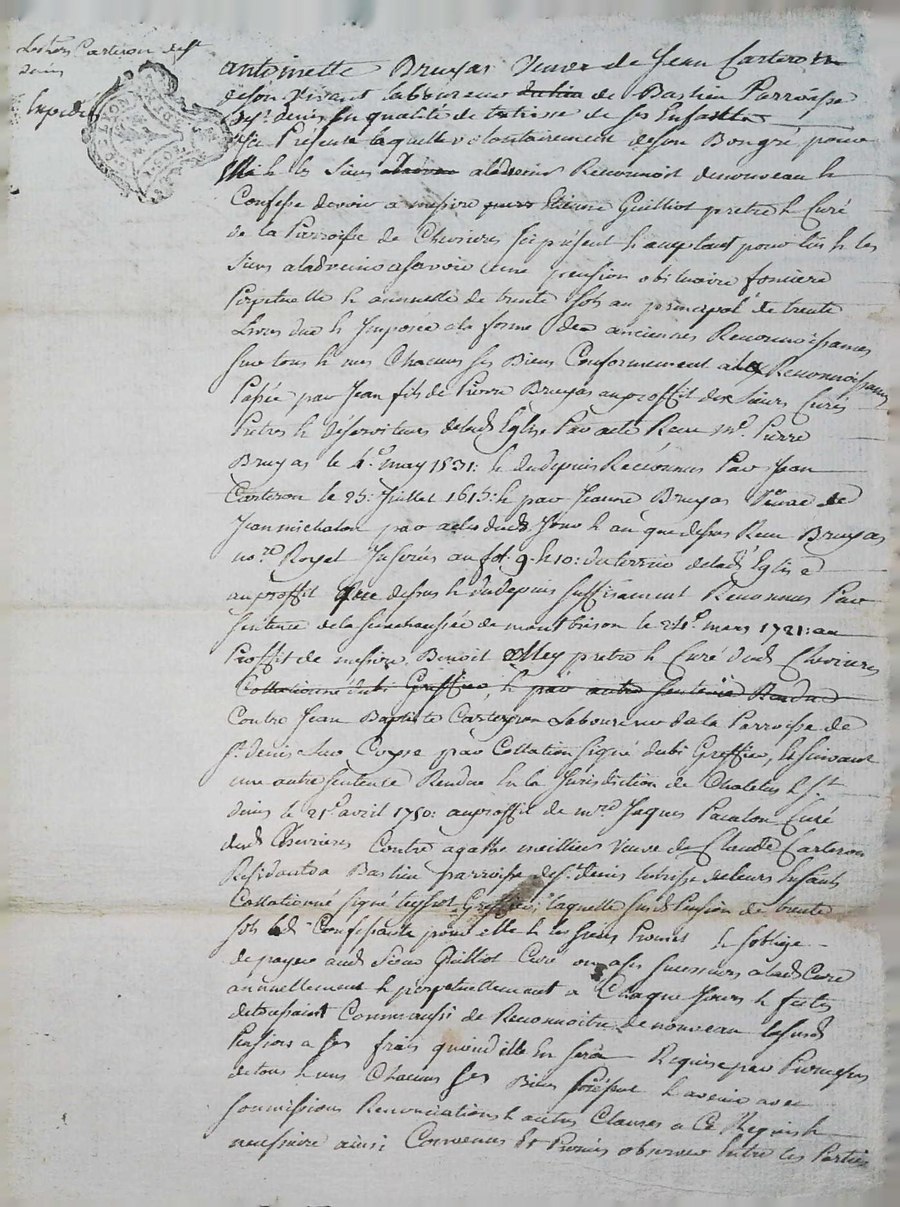 antoinette Bruyas veuve de Jean Carteron
de son vivant laboureur de Bastien Parroisse
de st. denis en qualité de tutrisse de ses Enfants
icy Présente laquelle volontairement de son Bon gré pour
elle & les siens aladvenir Reconnoit de nouveau &
Confesse devoir a messire Etienne Guilliot pretre & Curé
de la Parroisse de Chevrieres icy présent & acceptant pour luy & les
siens aladvenir a savoir une pension obituaire fonciere
Perpetuelle & annuelle de trente sols au principal de trente
Livres due & Imposée a la forme des anciennes Reconnoissances
sur tous & uns Chacuns ses Biens Conformement aux Reconnoissances
Passée par Jean fils de Pierre Bruyas au proffit des sieurs Curés
Pretres & déserviteurs de lad Eglise Par acte Receu me. Pierre
Bruyas le 4e. may 1531: & du depuis Reconnues Par Jean
Carteron le 25: Juillet 1615: & par Jeanne Bruyas veuve de
Jean michalon par actes dud Jour & an que dessus Receu Bruyas
nore. Royal Inserés au fol. 9. & 10: du terrier de lad. Eglise
au proffit que dessus & du depuis suffisament Reconnues Par
sentence de la senechaussée de montbrison le 24e. mars 1721: au
Proffit de messire Benoit pretre & Curé dud Chevrieres
Collationné Greffier, & par autre sentence Rendue
Contre Jean Baptiste Carteron Laboureur de la Parroisse de
st. denis sur Coyse par Collation signé dubi Greffier, & suivant
une autre sentence Rendue En la Jurisdiction de Chatelus & st.
denis le 21e. avril 1750: au proffit de mre. Jaques Curé
dud Chevrieres Contre agathe meillier veuve de Claude Carteron
Résidante a Bastien parroisse de st. denis tutrisse de leurs Enfants
Collationné signé teyssot Greffier: laquelle susd Pension de trente
sols lad. Confessante pour elle & les siens Promet & soblige
de payer aud sieur Guilliot Curé ou a ses successeurs a lad Cure
annuellement & perpetuellement a Chaque Jours & festes
de toussaint Comme aussi de Reconnoitre de nouveau lesusd
Pensions a ses frais quand elle En sera Requise par Promesses
de tous & uns Chacuns ses Biens présent & avenir avec
soumissions Renonciations & autres Clauses a Ce Requis &
necessaire ainsi Convenus Et Promis observer Entre les Parties